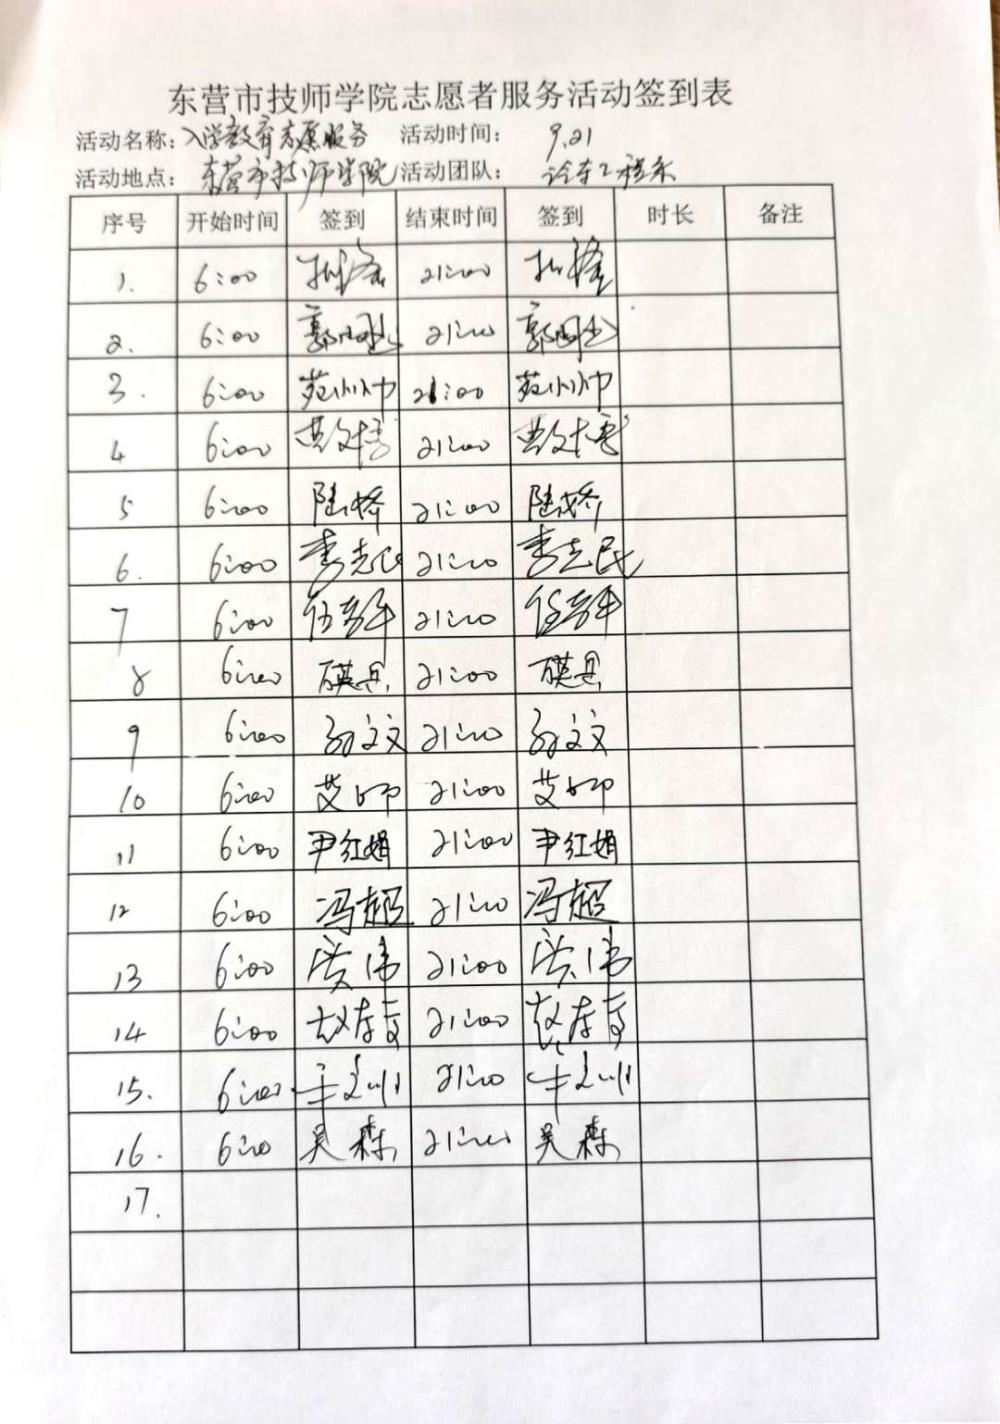 东营市技师学院志愿者服务活动签到表
活动名称：入学教育志愿服务 活动时间： 9.21
活动地点：东营市技师学院 活动团队： 工程系
序号 开始时间 签到 结束时间 签到 时长 备注
1. 6:00 21:00
2. 6:00 郭 21:00 郭
3. 6:00 苑帅帅 21:00 苑帅帅
4 6:00 21:00
5 6:00 陆 21:00 陆
6. 6:00 李志民 21:00 李志民
7 6:00 21:00
8 6:00 21:00
9 6:00 孙文文 21:00 孙文文
10 6:00 艾帅 21:00 艾帅
11 6:00 尹红娟 21:00 尹红娟
12 6:00 冯超 21:00 冯超
13 6:00 21:00
14 6:00 赵 21:00 赵
15. 6:00 21:00
16. 6:00 吴森 21:00 吴森
17.